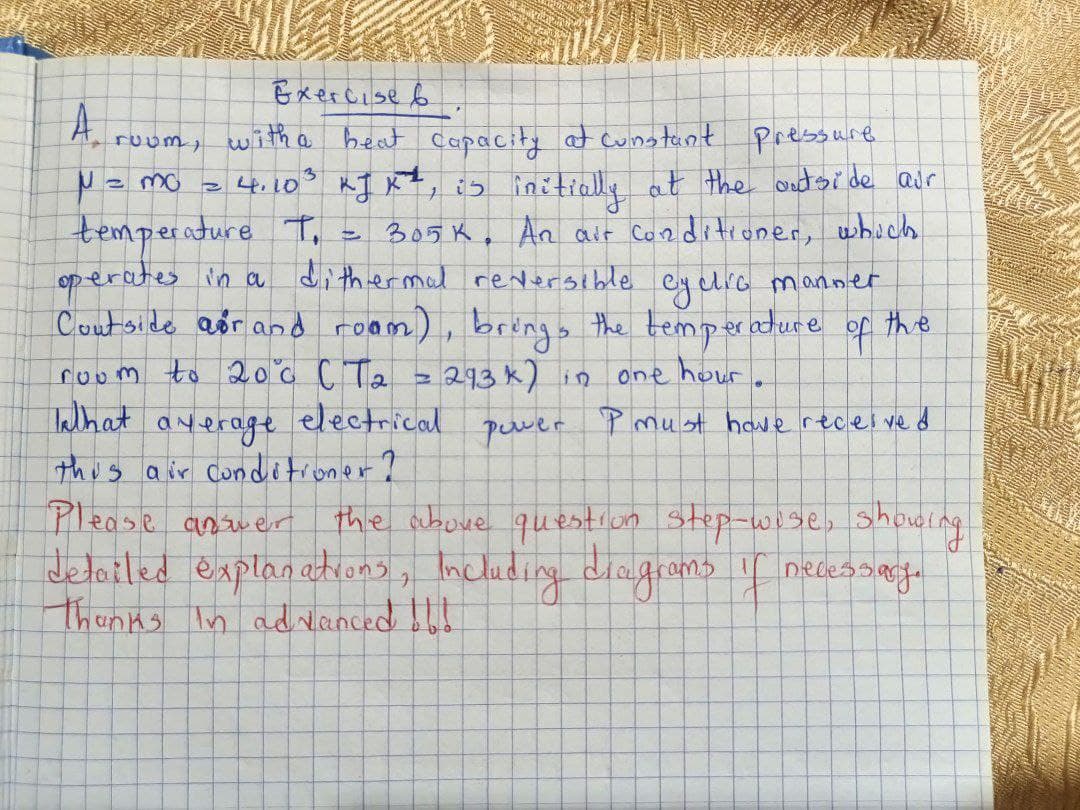 Exercise 6.
A room, with a heat capacity at constant pressure
μ = mc = 4.10³ kJ K⁻¹, is initially at the outside air
temperature T₁ = 305K. An air conditioner, which
operates in a dithermal reversible cyclic manner
(outside air and room), brings the temperature of the
room to 20°C (T2 = 293K) in one hour.
What average electrical power P must have received
this air conditioner?
Please answer the above question step-wise, showing
detailed explanations, Including diagrams if necessary.
Thanks In advanced !!!